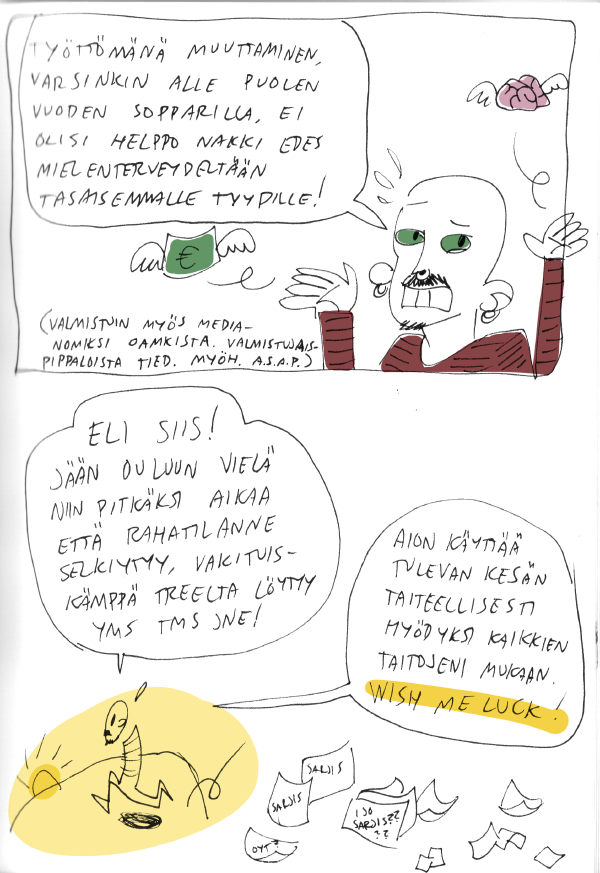 TYÖTTÖMÄNÄ MUUTTAMINEN,
VARSINKIN ALLE PUOLEN
VUODEN SOPPARILLA, EI
OLISI HELPPO NAKKI EDES
MIELENTERVEYDELTÄÄN
TASAISEMMALLE TYYPILLE!
€
(VALMISTUIN MYÖS MEDIA-
NOMIKSI OAMKISTA. VALMISTUJAIS-
PIPPALOISTA TIED. MYÖH. A.S.A.P.)
ELI SIIS!
JÄÄN OULUUN VIELÄ
NIIN PITKÄKSI AIKAA
ETTÄ RAHATILANNE
SELKIYTYY, VAKITUIS-
KÄMPPÄ TREELTA LÖYTYY
YMS TMS JNE!
AION KÄYTTÄÄ
TULEVAN KESÄN
TAITEELLISESTI
HYÖDYKSI KAIKKIEN
TAITOJENI MUKAAN.
WISH ME LUCK!
SARJIS
SARJIS
ISO
SARJIS??
??